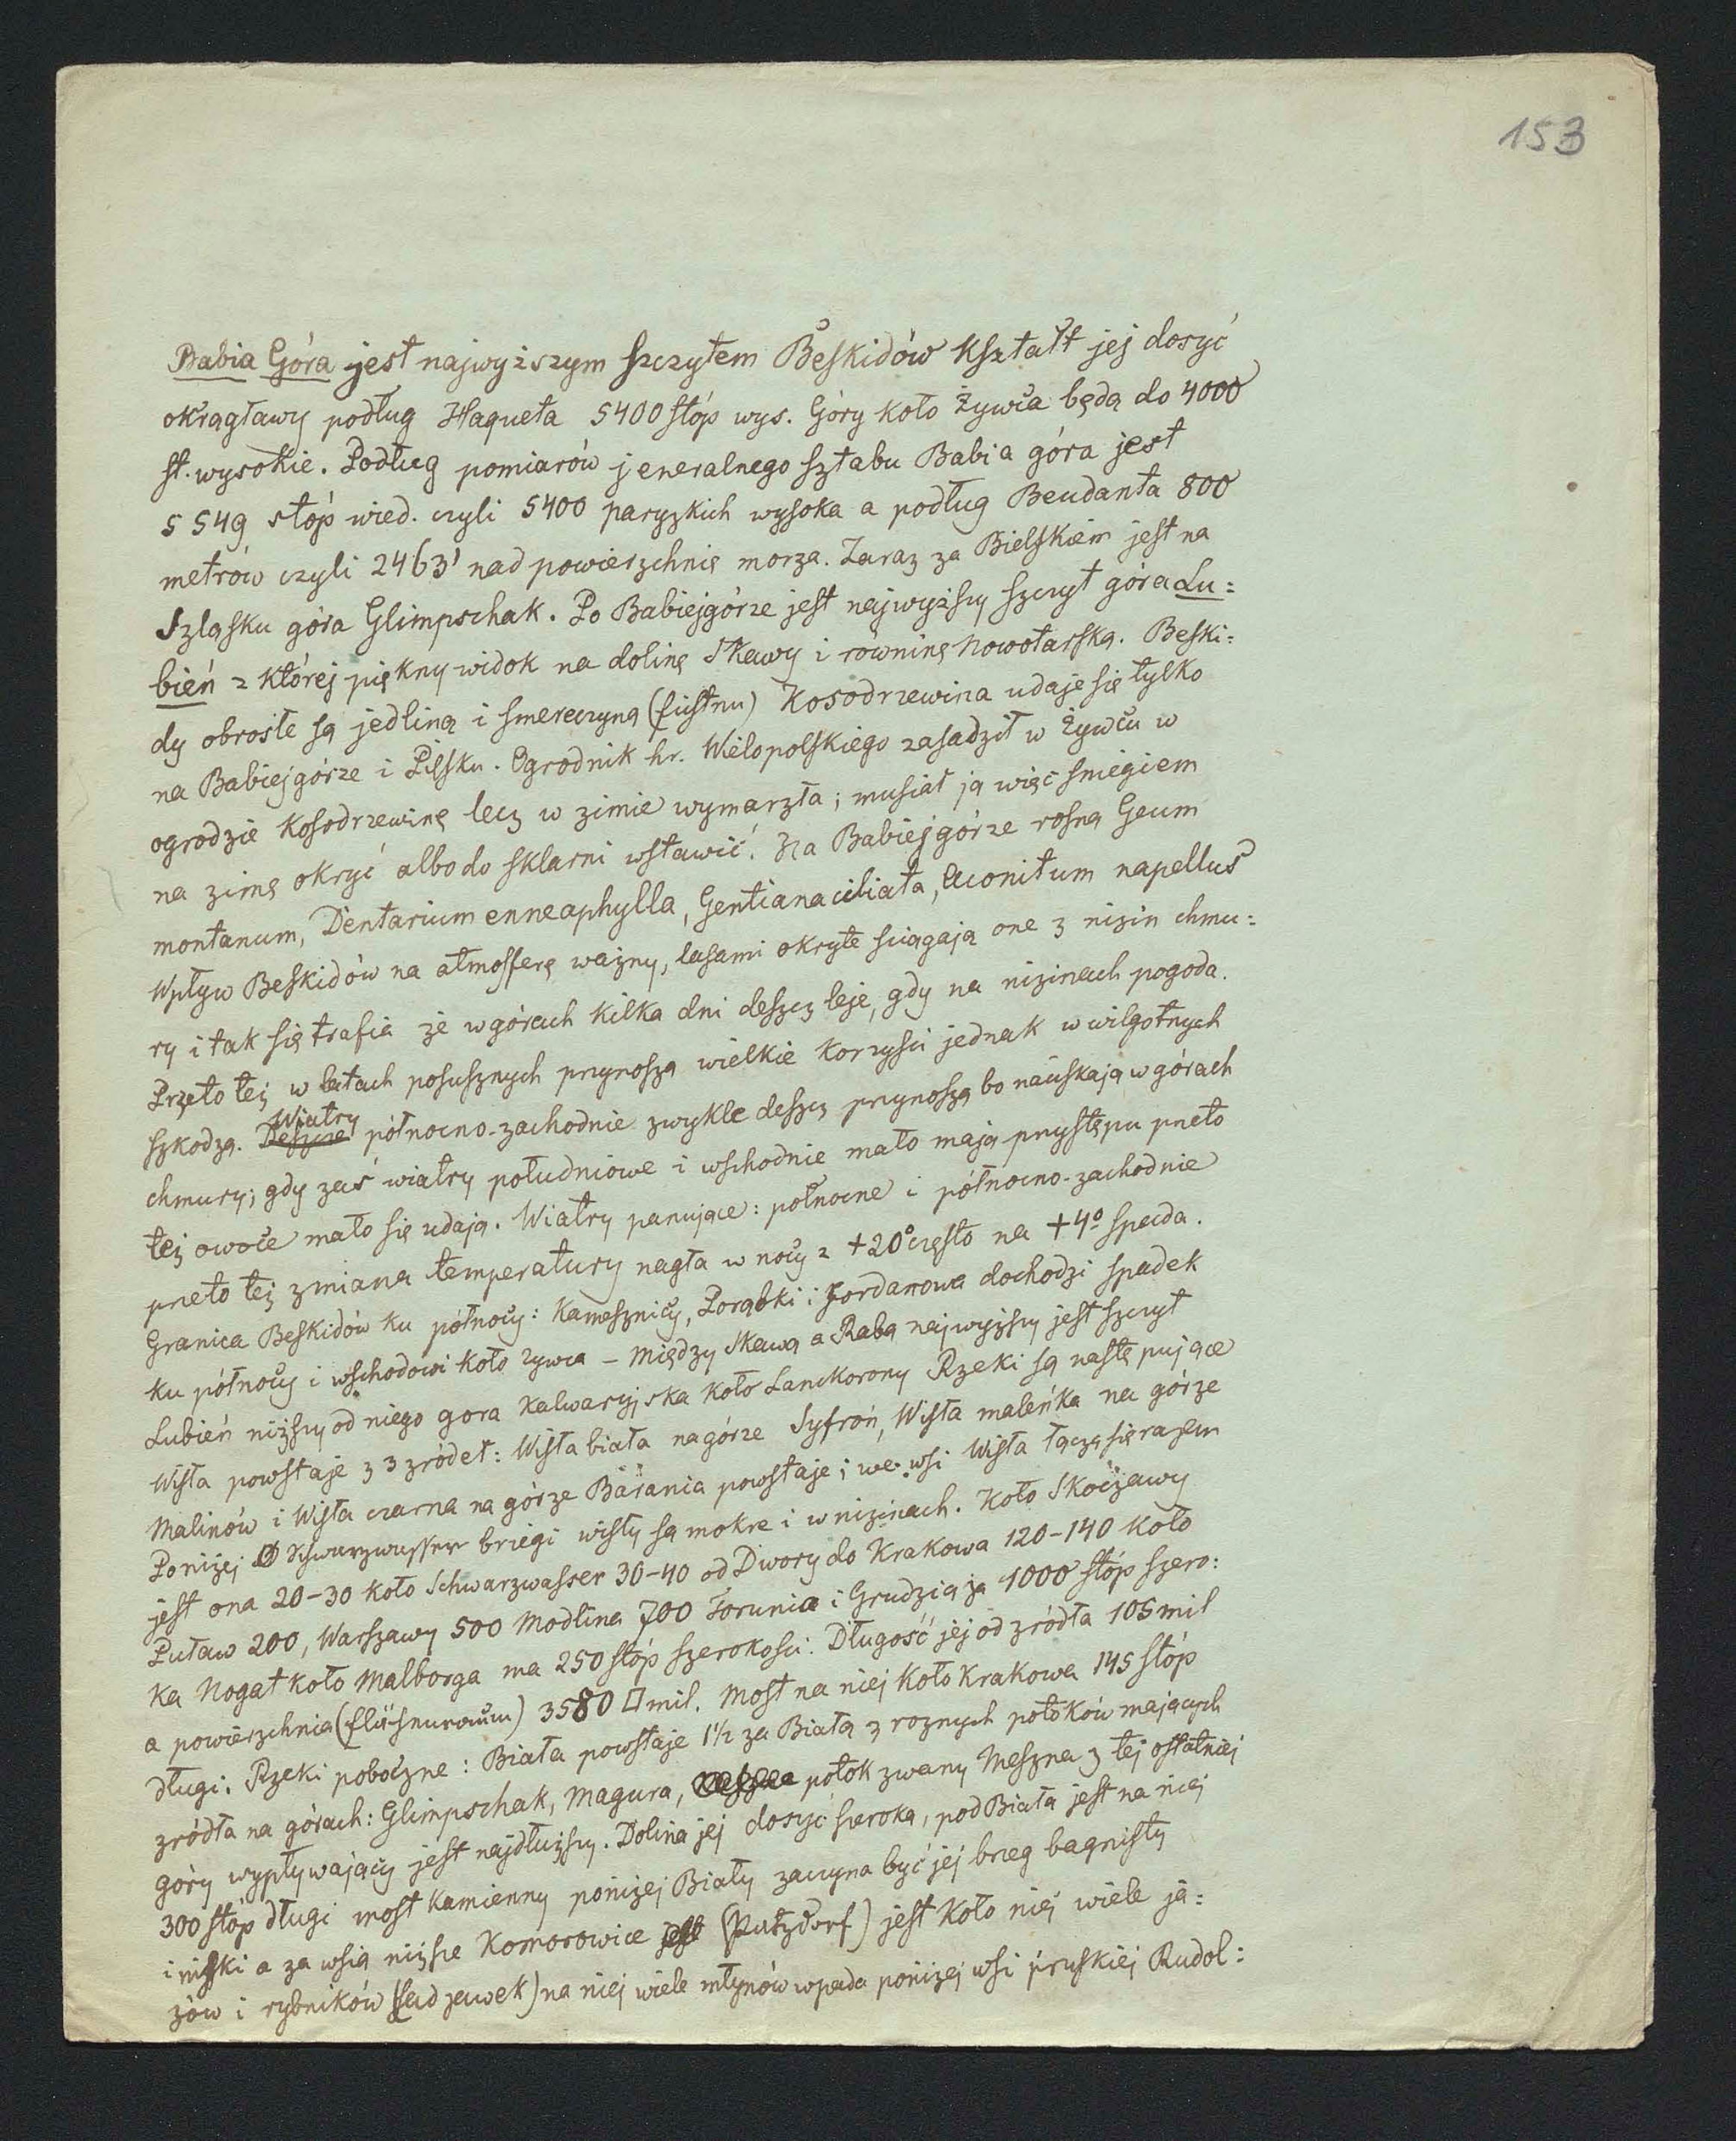 153
Babia Góra jest najwyższym szczytem Beskidów Kształt jej dosyć
okrągławy podług Haqueta 5400 stóp wys. Góry koło Żywca będą do 4000
st. wysokie. Podług pomiarów jeneralnego sztabu Babia góra jest
5549 stóp wied. czyli 5400 paryzkich wysoka a podług Beudanta 800
metrów czyli 2463' nad powierzchnię morza. Zaraz za Bielskiem jest na
Szląsku góra Glimpschak. Po Babiejgórze jest najwyższy szczyt góra Lu=
bień z której piękny widok na dolinę Skawy i równinę Nowotarską. Beski=
dy obrosłe są jedliną i smereczyną (fistnu) Kosodrzewina udaje się tylko
na Babiejgórze i Pilsku. Ogrodnik hr. Wielopolskiego zasadził w Żywcu w
ogrodzie Kosodrzewinę lecz w zimie wymarzła; musiał ją więc sniegiem
na zimę okryć albo do sklarni wstawić. Na Babiejgórze rosną Geum
montanum, Dentarium enneaphylla, Gentiana ciliata, Aconitum napellus
Wpływ Beskidów na atmosferę ważny, lasami okryte sciągają one z nizin chmu=
ry i tak się trafia że w górach kilka dni deszcz leje, gdy na nizinach pogoda.
Przeto też w latach posusznych przynoszą wielkie korzysci jednak w wilgotnych
szkodzą. Deszcze Wiatry północno-zachodnie zwykle deszcz przynoszą bo naciskają w górach
chmury; gdy zaś wiatry południowe i wschodnie mało mają przystępu przeto
też owoce mało się udają. Wiatry panujące: północne i północno-zachodnie
przeto też zmiana temperatury nagła w nocy z +20° często na +4° spada.
Granica Beskidów ku północy: Kamesznicy, Porąbki i Jordanowa dochodzi spadek
ku północy i wschodowi koło Zywca – Między Skawą a Rabą najwyższy jest szczyt
Lubień niższy od niego gora Kalwaryjska koło Lanckorony Rzeki są następujące
Wisła powstaje z 3 zródeł: Wisła biała na górze Syfroń, Wisła maleńka na górze
Malinów i Wisła czarna na górze Barania powstaje; we wsi Wisła łączą się razem
Poniżej Schwarzwasser brzegi wisły są mokre i w nizinach. Koło Skoczawy
jest ona 20-30 koło Schwarzwasser 30-40 od Dwory do Krakowa 120-140 koło
Puław 200, Warszawy 500 Modlina 700 Torunia i Grudziąża 1000 stóp szero:
ka Nogat koło Malborga ma 250 stóp szerokosci. Długość jej od zródła 105 mil
a powierzchnia 3580 □ mil. Most na niej koło Krakowa 145 stóp
długi. Rzeki poboczne: Biała powstaje 1½ za Białą z roznych potoków mających
zródła na górach: Glimpschak, Magura, potok zwany Meszna z tej ostatniej
góry wypływający jest najdłuższy. Dolina jej dosyć szeroka, pod Białą jest na niej
300 stóp długi most kamienny poniżej Biały zaczyna być jej brzeg bagnisty
i niski a za wsią niższe Komorowice jest (Putzdorf) jest koło niej wiele ja=
zów i rybników (Sadzawek) na niej wiele młynów wpada poniżej wsi pruskiej Rudol=